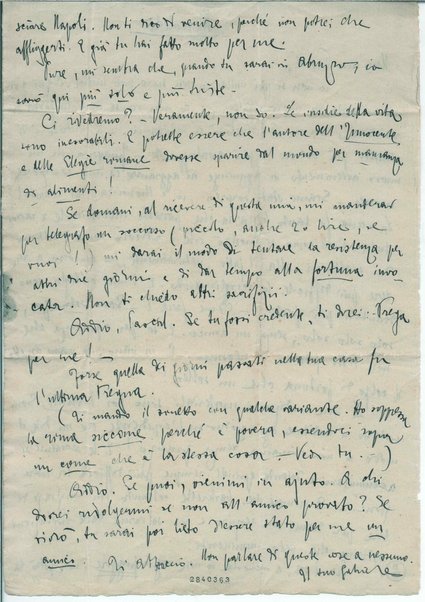 sciare Napoli. Non ti dico di venire, perché non potrei che
affliggerti. E già tu hai fatto molto per me.
Pure, mi sembra che, quando tu sarai in Abruzzo, io
sarò qui più solo e più triste.
Ci rivedremo? - Veramente, non so. Le insidie della vita
sono inesorabili. E potrebbe essere che l'autore dell'Innocente
e delle Elegie romane dovesse sparire dal mondo per mancanza
di alimenti!
Se domani, al ricevere di questa mia, mi manderai
per telegrafo un soccorso (piccolo, anche 20 lire, se
vuoi!) mi darai il modo di tentare la resistenza per
altri due giorni e di dar tempo alla fortuna invo-
cata. Non ti chiedo altri sacrifizii.
Addio, Se tu fossi credente, ti direi: Prega
per me! -
Forse quella dei giorni passati nella tua casa fu
l'ultima tregua.
(Ti mando il sonetto con qualche variante. Ho soppressa
la rima siccome perché è povera, essendovi sopra
un come che è la stessa cosa - Vedi tu.)
Addio. Se puoi, vienimi in ajuto. A chi
dovrei rivolgermi se non all'amico provato? Se
vivrò, tu sarai poi lieto d'essere stato per me un
amico. Ti abbraccio. Non parlare di queste cose a nessuno.
Il tuo Gabriele
2840363